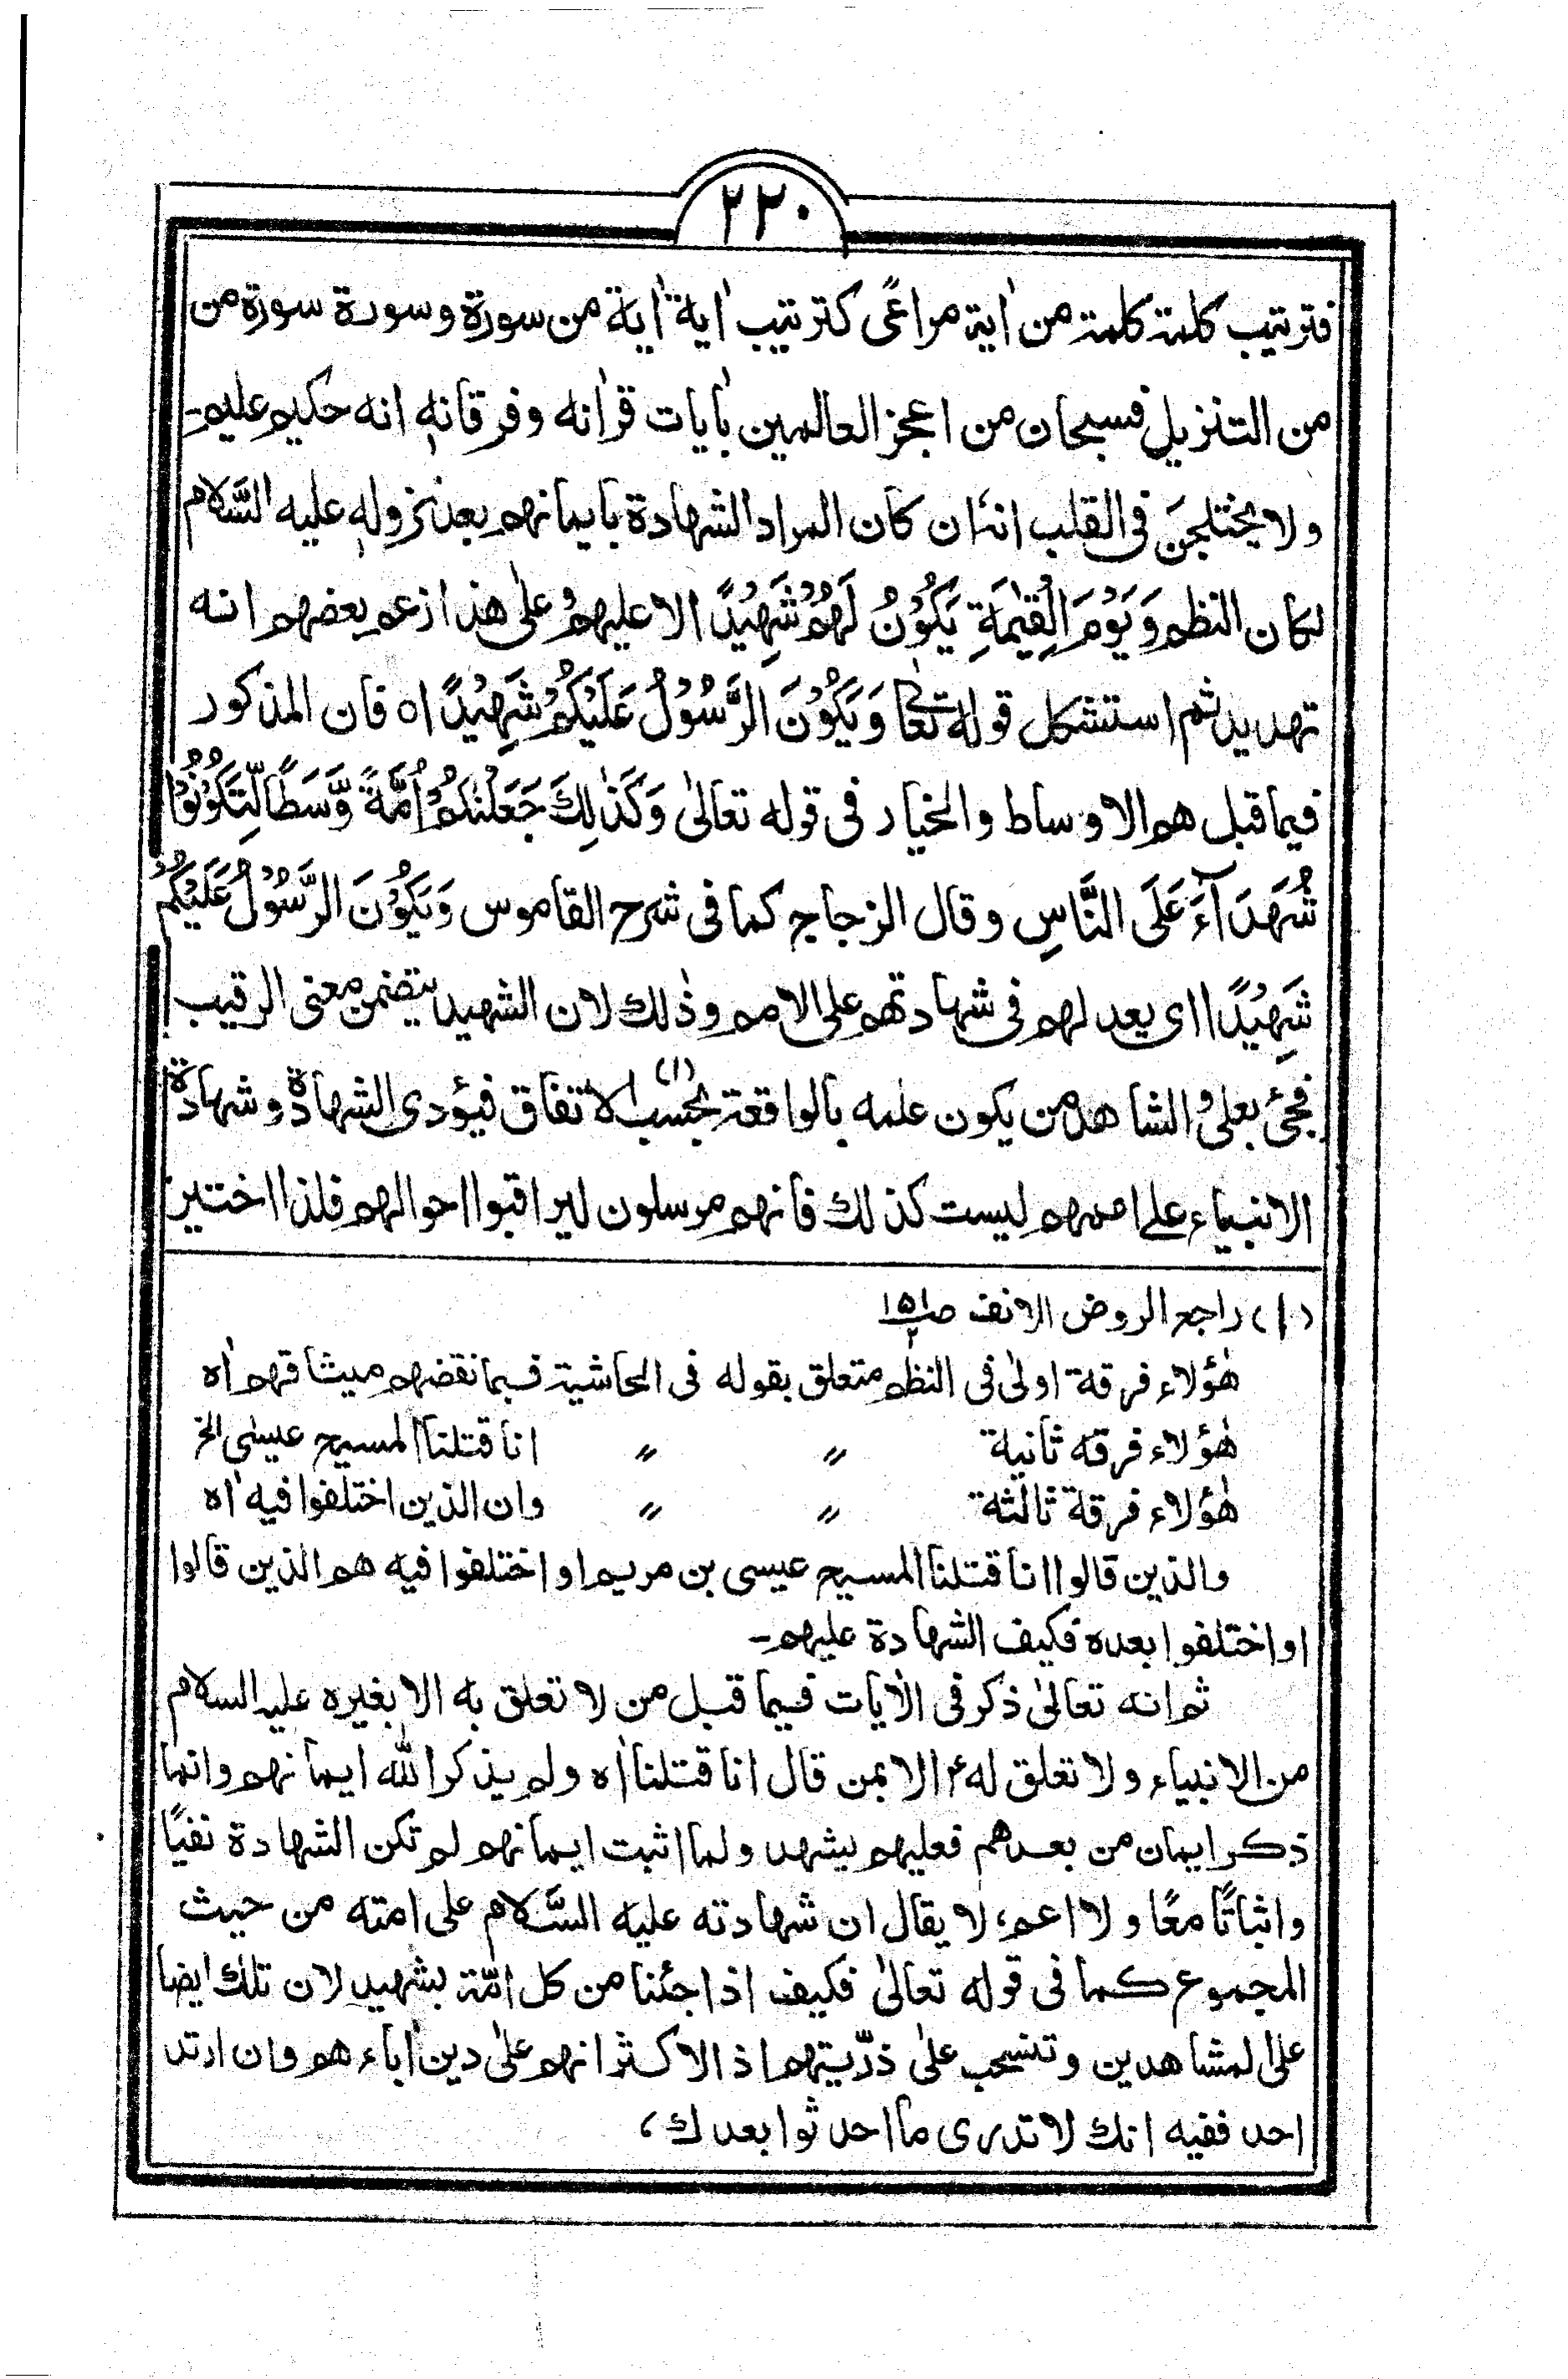 ٢٢٠
فترتیب کلمة کلمة من اٰیة مراعًی کترتیب اٰیة اٰیة من سورة وسورة سورة من
من التنزیل فسبحان من اعجز العالمین باٰیات قراٰنه وفرقانه انه حکیم علیم۔
ولا یختلجن فی القلب انه ان کان المراد الشهادة بایمانهم بعد نزوله علیه السَّلام
لکان النظم وَیَوْمَ الْقِیٰمَةِ یَکُوْنُ لَهُمْ شَهِیْدًا لا علیهم وعلٰی هذا زعم بعضهم انه
تهدید ثم استشکل قوله تعالٰی وَیَکُوْنَ الرَّسُوْلُ عَلَیْکُمْ شَهِیْدًا اه فان المذکور
فیما قبل هم الاوساط والخیار فی قوله تعالٰی وَکَذٰلِكَ جَعَلْنٰکُمْ اُمَّةً وَّسَطًا لِّتَکُوْنُوْا
شُهَدَآءَ عَلَی النَّاسِ وقال الزجاج کما فی شرح القاموس وَیَکُوْنَ الرَّسُوْلُ عَلَیْکُمْ
شَهِیْدًا ای یعد لهم فی شهادتهم علی الامم وذٰلك لان الشهید یتضمن معنی الرقیب
فجیٔ بعلٰی والشاهد من یکون علمه بالواقعة بحسب الاتفاق(١) فیؤدی الشهادة وشهادة
الانبیاء علی اممهم لیست کذلك فانهم مرسلون لیراقبوا احوالهم فلذا اختیر
(١) راجع الروض الانف ص١٥١/٢
هٰؤلاء فرقة اولٰی فی النظم متعلق بقوله فی الحاشیة فبما نقضهم میثاقهم اٰه
هٰؤلاء فرقه ثانیة 〃 〃 انا قتلنا المسیح عیسٰی الخ
هٰؤلاء فرقة ثالثة 〃 〃 وان الذین اختلفوا فیه اٰه
والذین قالوا انا قتلنا المسیح عیسی بن مریم او اختلفوا فیه هم الذین قالوا
او اختلفوا بعده فکیف الشهادة علیهم۔
ثم انه تعالٰی ذکر فی الاٰیات فیما قبل من لا تعلق به الا بغیره علیه السلام
من الانبیاء ولا تعلق له الا بمن قال انا قتلنا اٰه ولم یذکر الله ایمانهم وانما
ذکر ایمان من بعدهم فعلیهم یشهد ولما اثبت ایمانهم لم تکن الشهادة نفیًا
واثباتًا معًا ولا اعم، لا یقال ان شهادته علیه السَّلام علی امته من حیث
المجموع کما فی قوله تعالٰی فکیف اذا جئنا من کل امّة بشهید لان تلك ایضا
علی المشاهدین وتنسحب علٰی ذرّیتهم اذ الاکثر انهم علٰی دین اٰباءهم وان ارتد
احد ففیه انك لا تدری ما احدثوا بعدك،